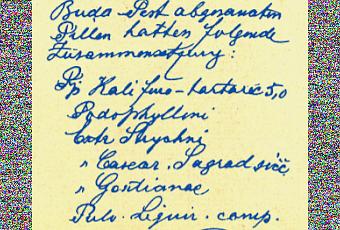 Buda Pest abgesandten
Pillen hatten folgende
Zusammensetzung:
Rp Kali suro-tartaric 5,0
Podophyllini
Extr Strychni
" Cascar. Sagrad sicc
" Gentianae
Pulv. Liquir. comp.